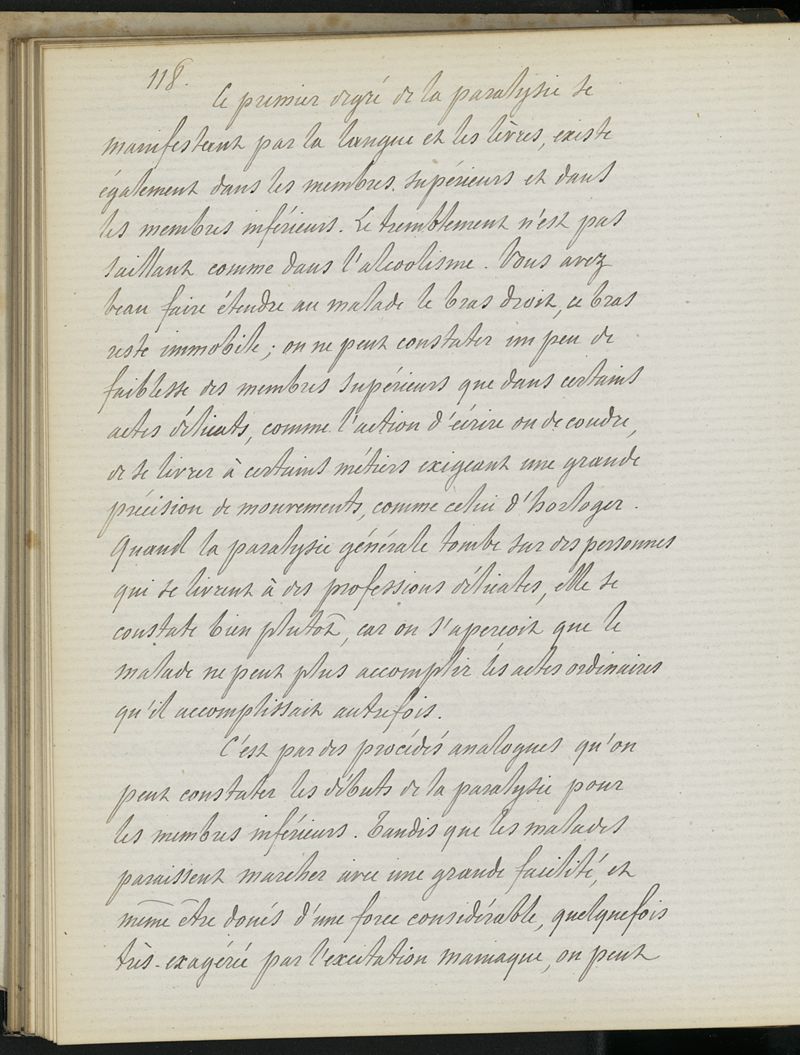 118.
Ce premier degré de la paralysie se
manifestant par la langue et les lèvres, existe
également dans les membres supérieurs et dans
les membres inférieurs. Le tremblement n'est pas
saillant comme dans l'alcoolisme. Vous avez
beau faire étendre au malade le bras droit, ce bras
reste immobile ; on ne peut constater un peu de
faiblesse des membres supérieurs que dans certains
actes délicats, comme l'action d'écrire ou de coudre,
de se livrer à certains métiers exigeant une grande
précision de mouvements, comme celui d'horloger.
Quand la paralysie générale tombe sur des personnes
qui se livrent à des professions délicates, elle se
constate bien plutôt, car on s'aperçoit que le
malade ne peut plus accomplir les actes ordinaires
qu'il accomplissait autrefois.
C'est par des procédés analogues qu'on
peut constater les débuts de la paralysie pour
les membres inférieurs. Tandis que les malades
paraissent marcher avec une grande facilité, et
même être doués d'une force considérable, quelquefois
très-exagérée par l'excitation maniaque, on peut